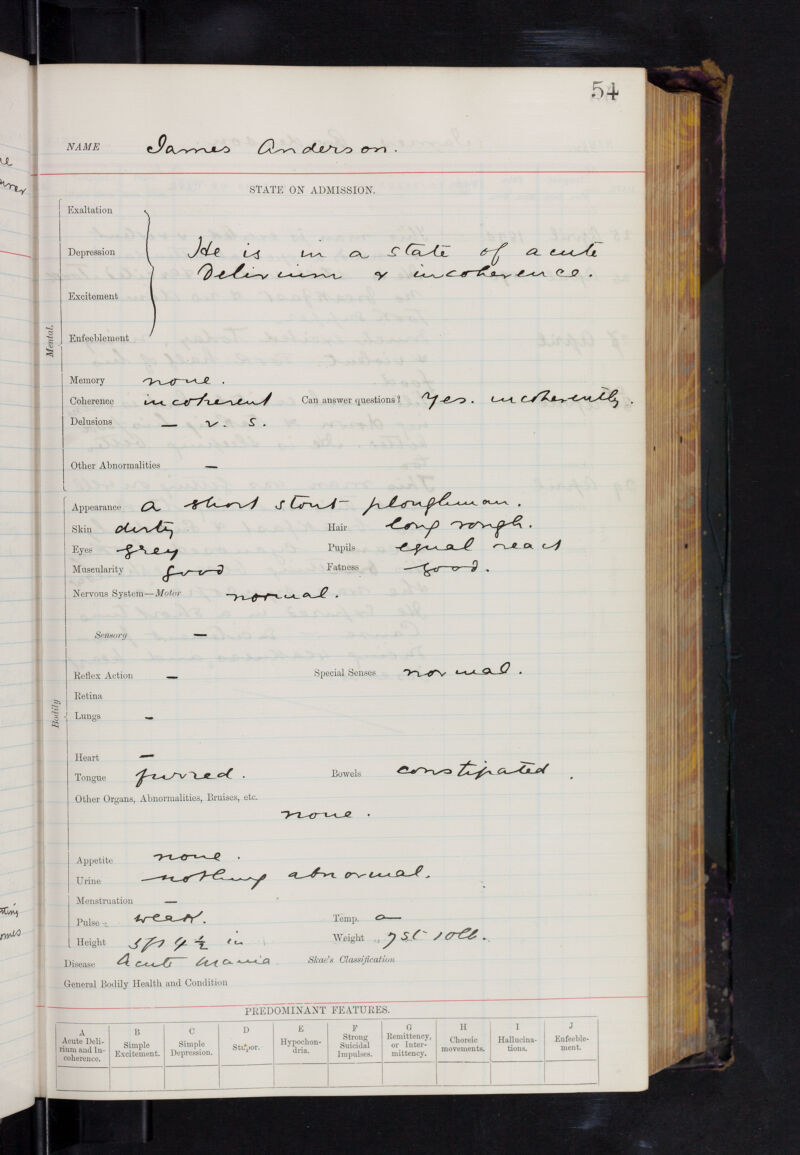 54
NAME James Anderson.
STATE ON ADMISSION.
Mental.
Exaltation
Depression
Excitement
Enfeeblement
He is in a state of acute
Delirium & incoherence.
Memory none.
Coherence incoherent Can answer questions? Yes. incoherently.
Delusions — v. s.
Other Abnormalities —
Bodily
Appearance a short stout ploughman.
Skin dirty Hair long rough.
Eyes grey Pupils equal react
Muscularity good Fatness good.
Nervous System—Motor normal.
Sensory —
Reflex Action — Special Senses normal.
Retina
Lungs –
Heart —
Tongue furred. Bowels constipated.
Other Organs, Abnormalities, Bruises, etc.
none.
Appetite none.
Urine nothing abnormal.
Menstruation —
Pulse weak. Temp.
Height 5ft 4½ in Weight 7st 10lb.
Disease Acute Mania Skae's Classification
General Bodily Health and Condition
PREDOMINANT FEATURES.
A B C D E F G H I J
Acute Delirium and Incoherence. Simple Excitement. Simple Depression. Stupor. Hypochondria. Strong Suicidal Impulses. Remittency, or Intermittency. Choreic movements. Hallucinations. Enfeeblement.